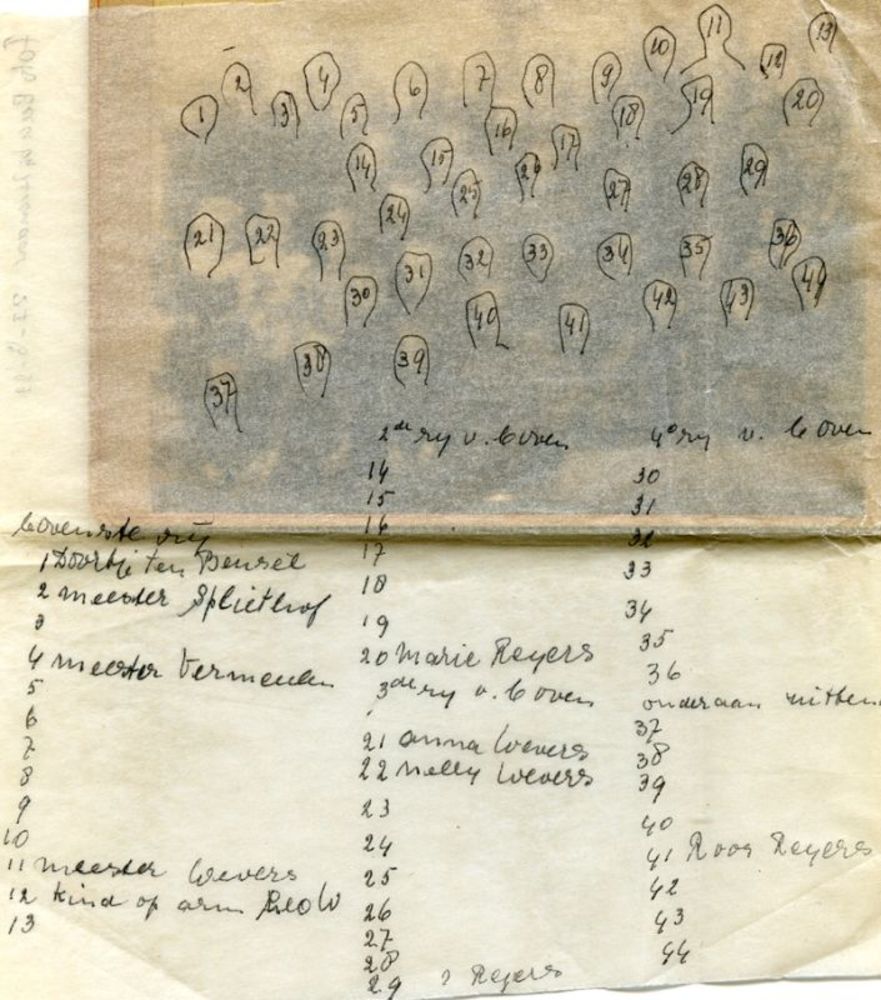 11
13
10
2
4
6
7
8
9
12
1
3
5
18
19
20
16
17
14
15
26
29
25
27
28
24
21
22
23
36
31
32
33
34
35
44
30
40
41
42
43
38
39
37
2de ry v. boven
14
15
16
17
18
19
20 Marie Reyers
3de ry v. boven
21 Anna Wevers
22 Nelly Wevers
23
24
25
26
27
28
29 ? Reyers
4e ry v. boven
30
31
32
33
34
35
36
onderaan zitten
37
38
39
40
41 Roos Reyers
42
43
44
bovenste rij
1 Doortje ten Bensel
2 meester Spliethof
3
4 meester Vermeulen
5
6
7
8
9
10
11 meester Wevers
12 kind op arm
13